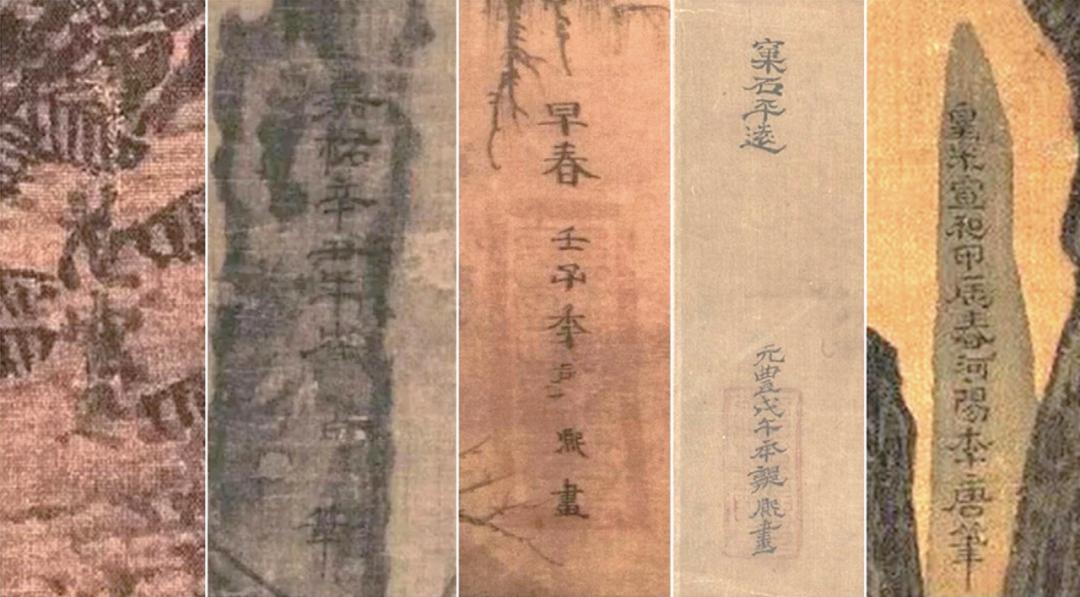 嘉祐辛丑年崔白筆
早春
壬子年郭熙畫
窠石平遠
元豐戊午年郭熙畫
皇宋宣和甲辰春河陽李唐筆